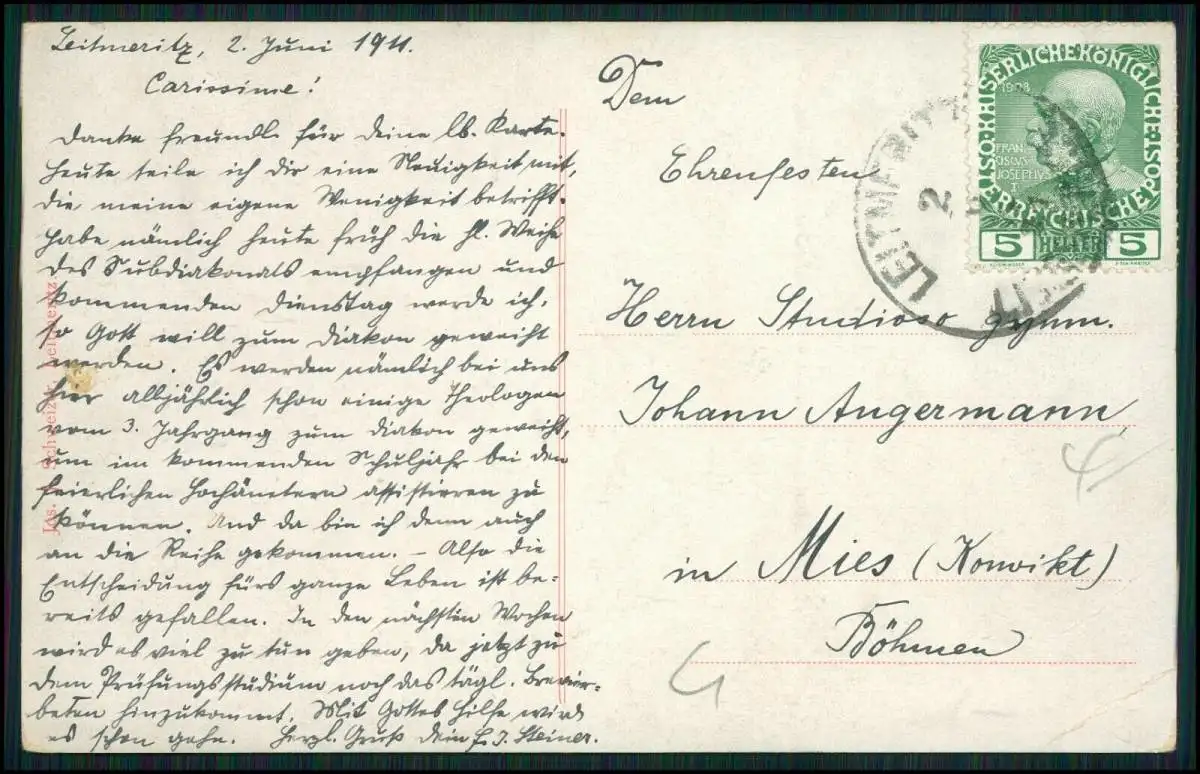 Leitmeritz, 2. Juni 1911.
Carissime!
Danke freundl. für deine lb. Karte.
Heute teile ich dir eine Neuigkeit mit,
die meine eigene Wenigkeit betrifft.
Habe nämlich heute früh die hl. Weihe
des Subdiakonats empfangen und
kommenden Dienstag werde ich,
so Gott will zum Diakon geweiht
werden. Es werden nämlich bei uns
hier alljährlich schon einige Theologen
vom 3. Jahrgang zum Diakon geweiht,
um im kommenden Schuljahr bei den
feierlichen Hochämtern assistieren zu
können. And da bin ich denn auch
an die Reihe gekommen. – Also die
Entscheidung fürs ganze Leben ist be-
reits gefallen. In den nächsten Wochen
wird es viel zu tun geben, da jetzt zu
dem Prüfungsstudium noch das tägl. Brevier-
beten hinzukommt. Mit Gottes Hilfe wird
es schon gehn. Herzl. Gruß dein F. J. Steiner.
Jos. Schweizer, Leitmeritz.
Dem
Ehrenfesten
Herrn Studioso gymn.
Johann Angermann,
in Mies (Konvikt)
Böhmen
KAISERLICHEKÖNIGLICHE
ÖSTERREICHISCHE POST
1908
FRAN
CISCVS
JOSEPHVS
I
5 HELLER 5
LEITMERITZ
2